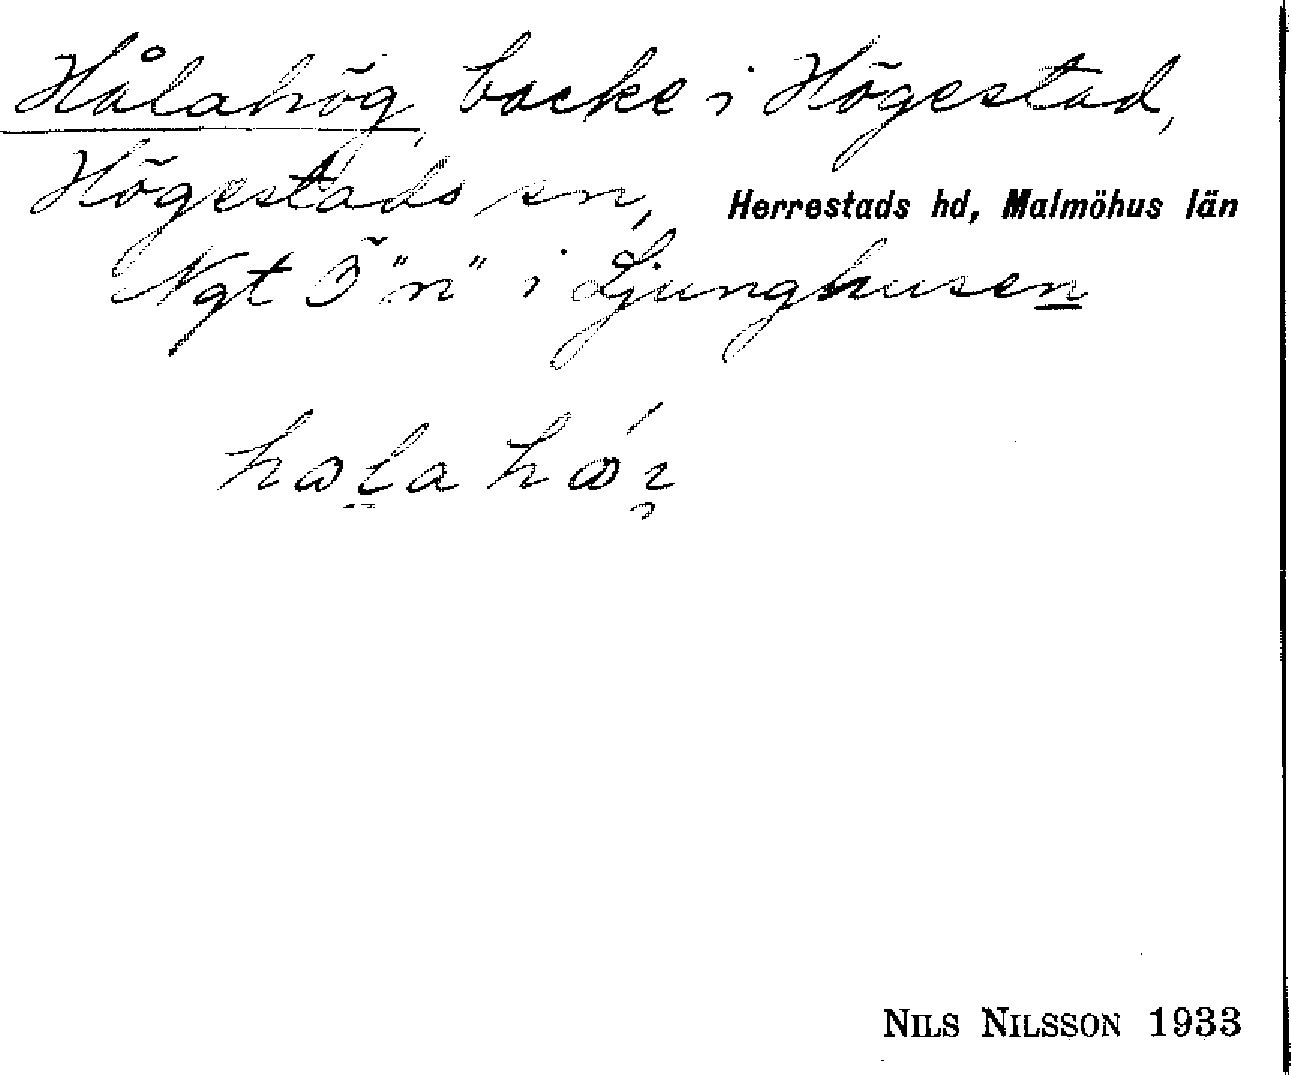 Hålahög, backe i Högestad,
Högestads sn, Herrestads hd, Malmöhus län
Ngt Ö "n" i Ljunghusen
NILS NILSSON 1933